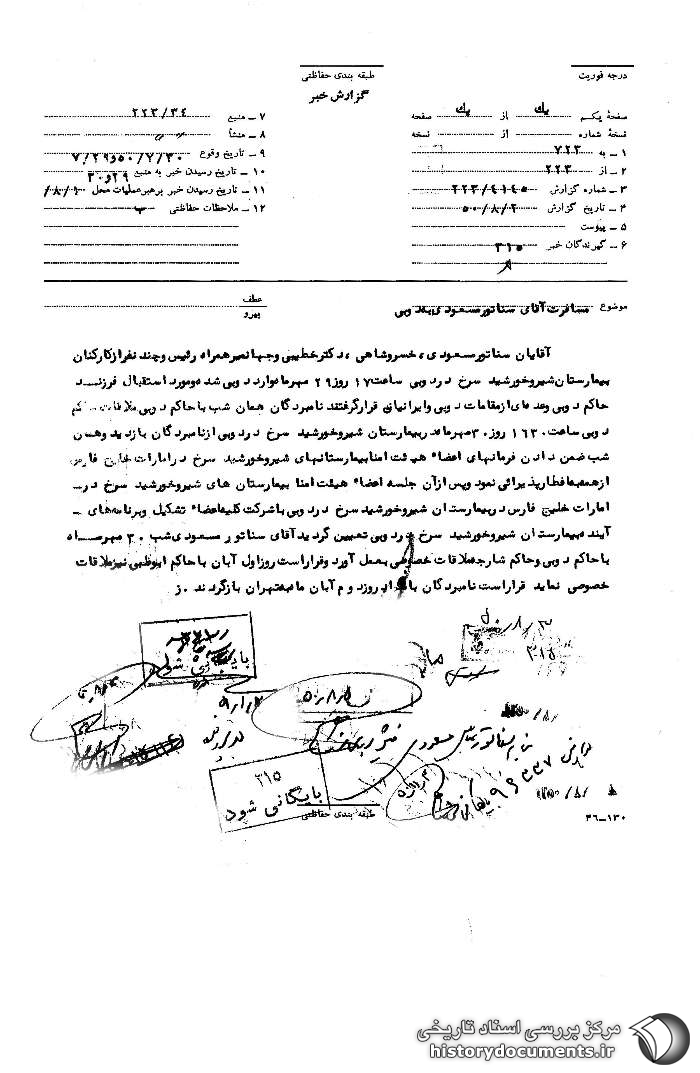 درجه فوریت
طبقه بندی حفاظتی
گزارش خبر
صفحهٔ یکم یک از یک صفحه
نسخهٔ شماره از نسخه
۱ ـ به ۷۲۳
۲ ـ از ۲۲۳
۳ ـ شماره گزارش ۲۲۳/۴۱۴۵
۴ ـ تاریخ گزارش ۵۰/۸/۲
۵ ـ پیوست
۶ ـ گیرندگان خبر ۳۱۵
۷ ـ منبع ۲۲۳/۳۴
۸ ـ منشأ " "
۹ ـ تاریخ وقوع ۷/۲۹و۵۰/۷/۳۰
۱۰ ـ تاریخ رسیدن خبر به منبع ۲۹و۳۰
۱۱ ـ تاریخ رسیدن خبر برهبرعملیات محل ۸/۱/
۱۲ ـ ملاحظات حفاظتی ب
موضوع مسافرت آقای سناتورمسعودی بدوبی
عطف
پیرو
آقایان سناتورمسعودی ، خسروشاهی ، دکترخطیبی وجهانمیرهمراه رئیس وچند نفرازکارکنان
بیمارستان شیروخورشید سرخ دردوبی ساعت ۱۷ روز ۲۹ مهرماه وارد دوبی شد ه ومورد استقبال فرزنـد
حاکم دوبی وعده ای ازمقامات دوبی وایرانیان قرارگرفتند نامبردگان همان شب باحاکم دوبی ملاقات حاکم
دوبی ساعت ۱۶۳۰ روز ۳۰ مهرماه دربیمارستان شیروخورشید سرخ دردوبی ازنامبردگان بازدید وهمان
شب ضمن دادن فرمانهای اعضاء هیئت امنا بیمارستانهای شیروخورشید سرخ درامارات خلیج فارس
ازهمه بافطارپذیرائی نمود وپس ازآن جلسه اعضاء هیئت امنا بیمارستان های شیروخورشید سرخ درـ
امارات خلیج فارس دربیمارستان شیروخورشید سرخ دردوبی باشرکت کلیه اعضاء تشکیل وبرنامه های ـ
آینده بیمارستان شیروخورشید سرخ دردوبی تعیین گردید آقای سناتور مسعودی شب ۳۰ مهرمـاه
باحاکم دوبی وحاکم شارجه ملاقات خصوصی بعمل آورد وقراراست روزاول آبان باحاکم ابوظبی نیزملاقات
خصوصی نماید قراراست نامبردگان روزدوم آبان ماه بتهران بازگردند . ز
بایگانی شود
۳۱۵
بایگانی شود
۵۰/۸/
طبقه بندی حفاظتی
۳۶-۱۳۰
مرکز بررسی اسناد تاریخی
historydocuments.ir